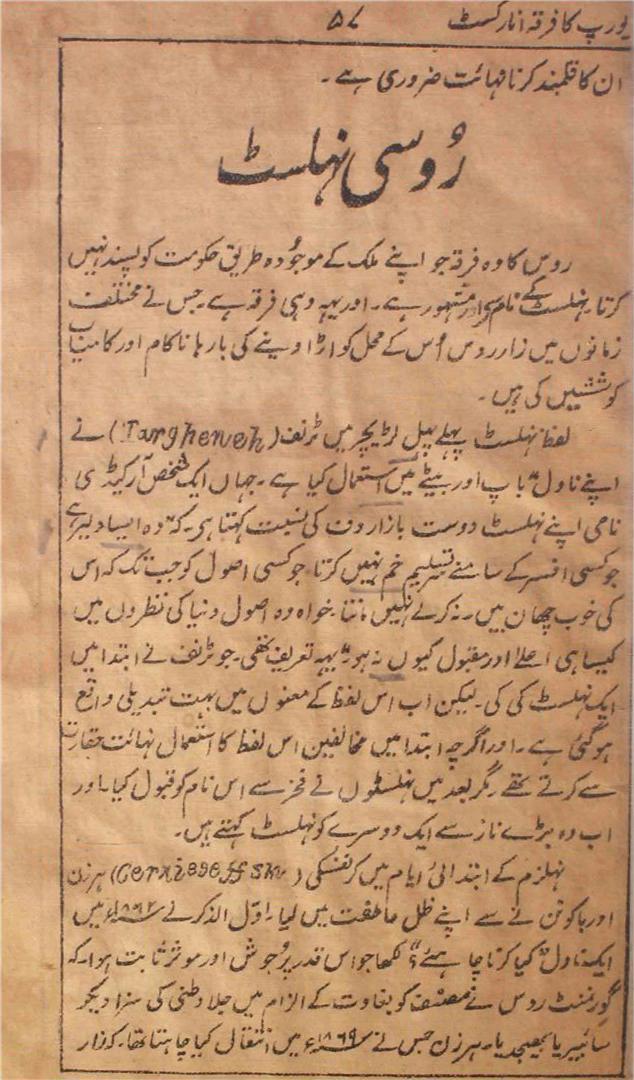 یورپ کا فرقہ انارکسٹ ۵۷
ان کا قلمبند کرنا نہائت ضروری ہے۔
رُوسی نہلسٹ
روس کا وہ فرقہ جو اپنے ملک کے موجُودہ طریق حکومت کو پسند نہیں
کرتا۔ نہلسٹ کے نام مشہور ہے۔ اور یہہ وہی فرقہ ہے۔ جس نے مختلف
زمانوں میں زار روس اُس کے محل کو اڑا دینے کی بارہا ناکام اور کامیاب
کوششیں کی ہیں۔
لفظ نہلسٹ پہلے پہل لٹریچر میں ٹرنف (Targheneh) نے
اپنے ناول "باپ اور بیٹے میں استعمال کیا ہے۔ جہاں ایک شخص آرکیڈی
نامی اپنے نہلسٹ دوست بازاروف کی نسبت کہتا ہی۔ کہ "وہ ایسا دلیر ہے
جو کسی افسر کے سامنے سر تسلیم خم نہیں کرتا۔ جو کسی اصول کو جب تک کہ اس
کی خوب چھان بین۔ نہ کرلے نہیں مانتا۔ خواہ وہ اصول دنیا کی نظروں میں
کیسا ہی اعلےٰ اور مقبول کیوں نہ ہو" یہہ تعریف تھی۔ جو ٹرنف نے ابتدا میں
ایک نہلسٹ کی کی۔ لیکن اب اس لفظ کے معنوں میں بہت تبدیلی واقع
ہو گئی ہے۔ اور اگرچہ ابتدا میں مخالفین اس لفظ کا استعمال نہائت حقارت
سے کرتے تھے۔ مگر بعد میں نہلسٹوں نے فخر سے اس نام کو قبول کیا۔ اور
اب وہ بڑے ناز سے ایک دوسرے کو نہلسٹ کہتے ہیں۔
نہلزم کے ابتدائی ایام میں کرنفسکی ( ) ہرزن
اور باکونن نے سے اپنے ظل عاطفت میں لیا۔ اوّل الذکر نے ۱۸۶۲ء میں
ایک ناول "کیا کرنا چاہئے؟" لکھا جو اس قدر پُرجوش اور موثر ثابت ہوا۔ کہ
گورنمنٹ روس نے مصنف کو بغاوت کے الزام میں جلاوطنی کی سزا دیکر
سائیبریا بھیجدیا۔ ہرزن جس نے ۱۸۶۹ء میں انتقال کیا چاہتا تھا۔ کہ زار